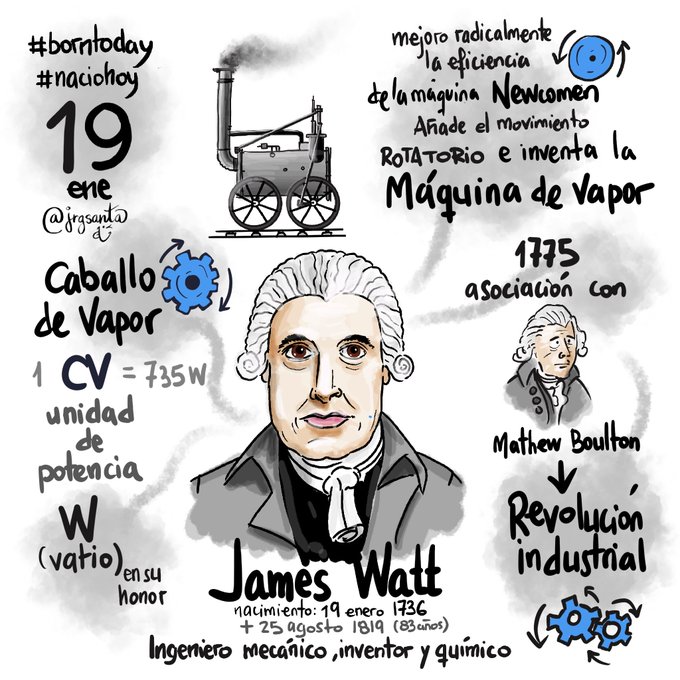 #borntoday
#naciohoy
19
ene
@jrgsanta
mejoro radicalmente
la eficiencia
de la máquina Newcomen
Añade el movimiento
ROTATORIO e inventa la
Máquina de Vapor
Caballo
de Vapor
1 CV = 735W
unidad
de
potencia
W
(vatio) en su
honor
1775
asociación con
Mathew Boulton
Revolución
industrial
James Watt
nacimiento: 19 enero 1736
+ 25 agosto 1819 (83 años)
Ingeniero mecánico, inventor y químico